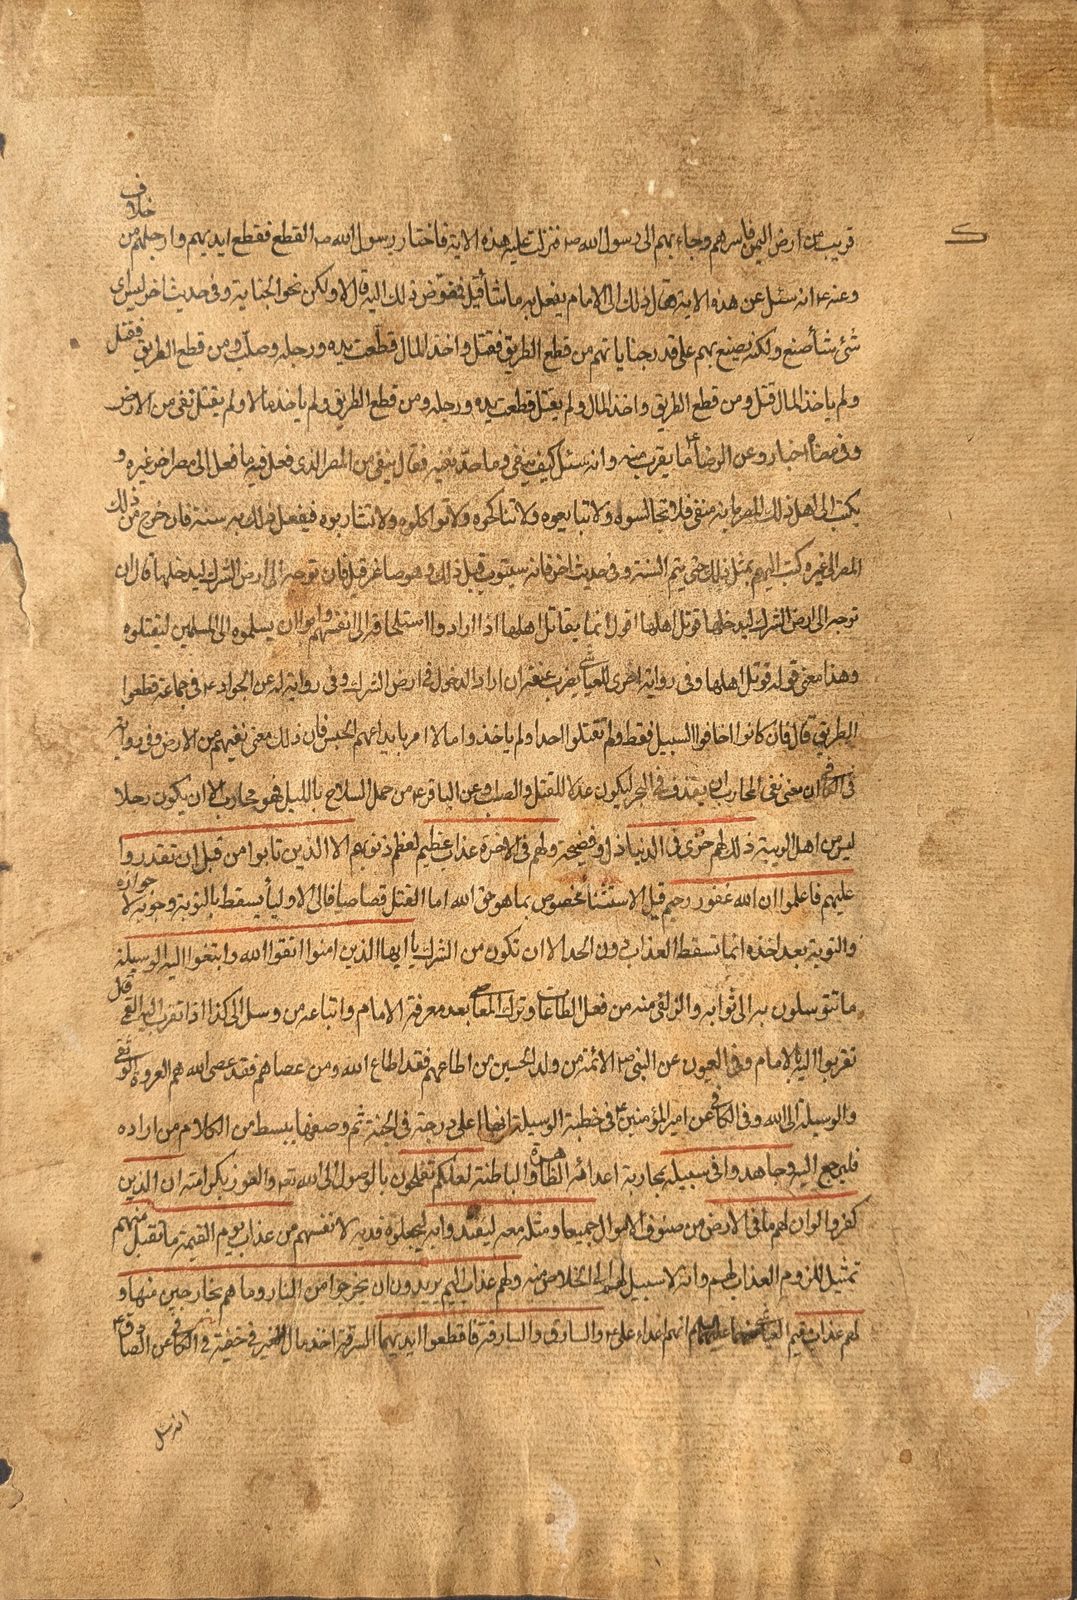 قريب من ارض اليمن فاسرهم وجاء بهم الى رسول الله ص فنزلت عليه هذه الاية فاختار رسول الله ص القطع فقطع ايديهم وارجلهم من خلاف
وعنه ع انه سئل عن هذه الاية فقال ذلك الى الامام يفعل به ما شأ قيل ففوض ذلك اليه قال لا ولكن نحو الجناية وفى حديث اخر ليس اى
شئ شأ صنع ولكنه يصنع بهم على قدر جناياتهم من قطع الطريق فقتل واخذ المال قطعت يده ورجله وصلب ومن قطع الطريق فقتل
ولم ياخذ المال قتل ومن قطع الطريق واخذ المال ولم يقتل قطعت يده ورجله ومن قطع الطريق ولم ياخذ مالا ولم يقتل نفى من الارض
وفى معناه اخبار وعن الرضا ع ما يقرب منه وانه سئل كيف ينفى وما حد نفيه فقال ينفى من المصر الذى فعل فيه ما فعل الى مصر اخر غيره و
يكتب الى اهل ذلك المصر بانه منفى فلا تجالسوه ولا تبايعوه ولا تناكحوه ولا تواكلوه ولا تشاربوه فيفعل ذلك به سنة فان خرج من ذلك
المصر الى غيره كتب اليهم بمثل ذلك حتى يتم السنة وفى حديث اخر فانه سيتوب قبل ذلك وهو صاغر قيل فان توجه الى ارض الشرك ليدخلها قال ان
توجه الى ارض الشرك ليدخلها قوتل اهلها اقول انما يقاتل اهلها اذا ارادوا استلحاقه الى انفسهم وابوا ان يسلموه الى المسلمين ليقتلوه
وهذا معنى قوله قوتل اهلها وفى رواية اخرى للعياشى يضرب عنقه ان اراد الدخول فى ارض الشرك وفى رواية له عن الجواد ع فى جماعة قطعوا
الطريق قال فان كانوا اخافوا السبيل فقط ولم يقتلوا احدا ولم ياخذوا مالا امر بايداعهم الحبس فان ذلك معنى نفيهم من الارض وفى رواية
فى الكافى ان معنى نفى المحارب ان يقذف فى البحر ليكون عدلا للقتل والصلب وعن الباقر ع من حمل السلاح بالليل فهو محارب الا ان يكون رجلا
ليس من اهل الريبة ذلك لهم خزى فى الدنيا ذل وفضيحة ولهم فى الاخرة عذاب عظيم لعظم ذنوبهم الا الذين تابوا من قبل ان تقدروا
عليهم فاعلموا ان الله غفور رحيم قيل الاستثنأ مخصوص بما هو حق الله اما القتل قصاصا فالى الاوليأ يسقط بالتوبة وجوبه لا جوازه
والتوبة بعد اخذه انما تسقط العذاب دون الحد الا ان تكون من الشرك يا ايها الذين امنوا اتقوا الله وابتغوا اليه الوسيلة
ما تتوسلون به الى ثوابه والزلفى منه من فعل الطاعات وترك المعاصى بعد معرفة الامام واتباعه من وسل الى كذا اذا تقرب اليه القمى قال
تقربوا اليه بالامام وفى العيون عن النبى ص الائمة من ولد الحسين من اطاعهم فقد اطاع الله ومن عصاهم فقد عصى الله هم العروة الوثقى
والوسيلة الى الله وفى الكافى عن امير المؤمنين ع فى خطبة الوسيلة انها اعلى درجة فى الجنة ثم وصفها ببسط من الكلام من اراده
فليرجع اليه وجاهدوا فى سبيله بمحاربة اعدائه الظاهرة والباطنة لعلكم تفلحون بالوصول الى الله تعه والفوز بكرامته ان الذين
كفروا لو ان لهم ما فى الارض من صنوف الاموال جميعا ومثله معه ليفتدوا به ليجعلوه فدية لانفسهم من عذاب يوم القيمة ما تقبل منهم
تمثيل للزوم العذاب لهم وانه لا سبيل لهم الى الخلاص منه ولهم عذاب اليم يريدون ان يخرجوا من النار وما هم بخارجين منها و
لهم عذاب مقيم العياشى عنهما عليهما السلام انهم اعداء على ع والسارق والسارقة فاقطعوا ايديهما السرقة اخذ مال الغير فى خفية فى الكافى عن الصادق ع
انه سئل